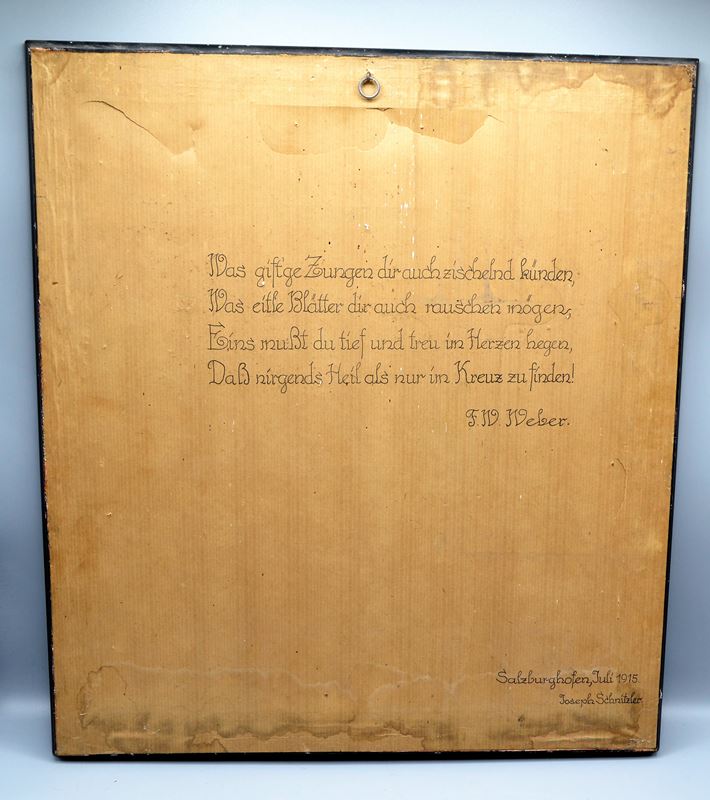 Was gift'ge Zungen dir auch zischelnd künden,
Was eitle Blätter dir auch rauschen mögen,
Eins mußt du tief und treu im Herzen hegen,
Daß nirgends Heil als nur im Kreuz zu finden!
F. W. Weber.
Salzburghofen, Juli 1915.
Joseph Schnitzler